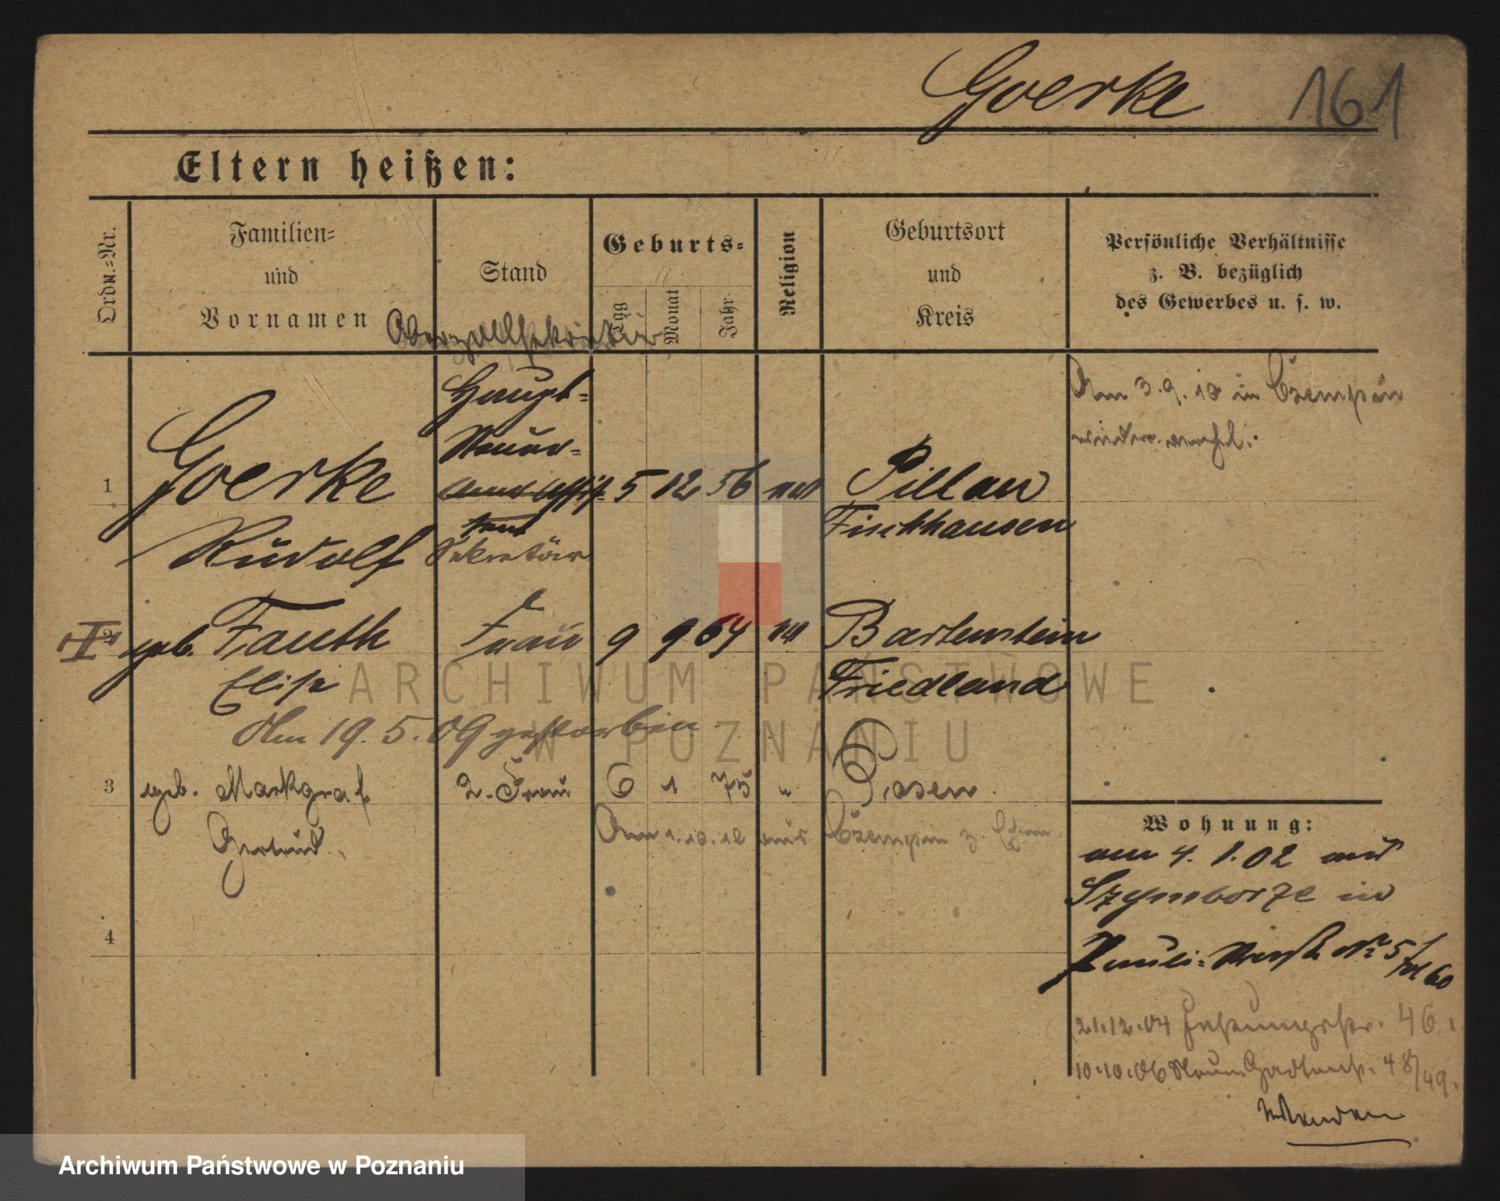 Goerke 161
Eltern heißen:
Ordn.-Nr.
Familien-
und
Vornamen
Stand
Geburts-
Tag
Monat
Jahr
Religion
Geburtsort
und
Kreis
Persönliche Verhältnisse
z. B. bezüglich
des Gewerbes u. s. w.
Oberzollsekretär
Haupt-
Am 3.9.10 in Czempin
1 Goerke 5 12 56 Pillau
Rudolf Sekretär Fischhausen
2 geb. Fauth Frau 9 9 64 Bartenstein
Elise Friedland
Am 19.5.09 gestorben
3 geb. Markgraf 2. Frau 6 1 75 " Posen
Gertrud
Am 1.10.12 aus Czempin z.
4
Wohnung:
am 4. 1. 02 aus
Szymborze in
Pauli- Nr. 5
21.12.04 46.
10.10.06 48/49.
Wenden
ARCHIWUM PAŃSTWOWE
W POZNANIU
Archiwum Państwowe w Poznaniu